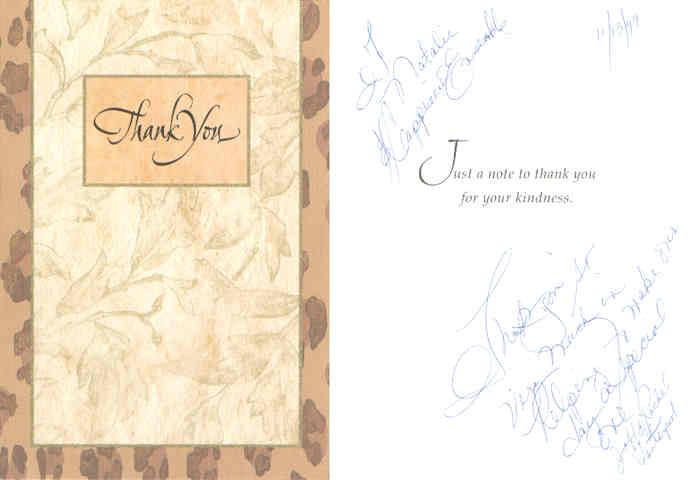 Thank You
11/13/99
Natalie
Ensemble
Just a note to thank you
for your kindness.
Thank you so
very much in
helping to make our
day a special
one